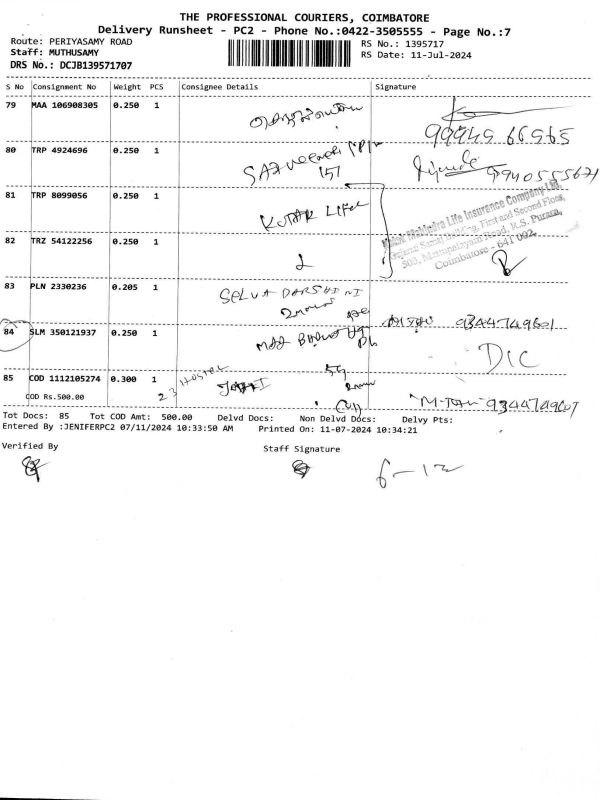 THE PROFESSIONAL COURIERS, COIMBATORE
Delivery Runsheet - PC2 - Phone No.:0422-3505555 - Page No.:7
Route: PERIYASAMY ROAD
Staff: MUTHUSAMY
DRS No.: DCJB139571707
RS No.: 1395717
RS Date: 11-Jul-2024
S No Consignment No Weight PCS Consignee Details Signature
79 MAA 106908305 0.250 1
99945 66565
80 TRP 4924696 0.250 1
151
81 TRP 8099056 0.250 1 KOTAK LIFE
Kotak Mahindra Life Insurance Company Ltd.
First and Second Floor,
Road, R.S. Puram,
Coimbatore - 641 002.
82 TRZ 54122256 0.250 1
83 PLN 2330236 0.205 1 SELVA DARSHINI
84 SLM 350121937 0.250 1
DIC
85 COD 1112105274 0.300 1 23 HOSTEL
COD Rs.500.00
Tot Docs: 85 Tot COD Amt: 500.00 Delvd Docs: Non Delvd Docs: Delvy Pts:
Entered By :JENIFERPC2 07/11/2024 10:33:50 AM Printed On: 11-07-2024 10:34:21
Verified By Staff Signature
6-12